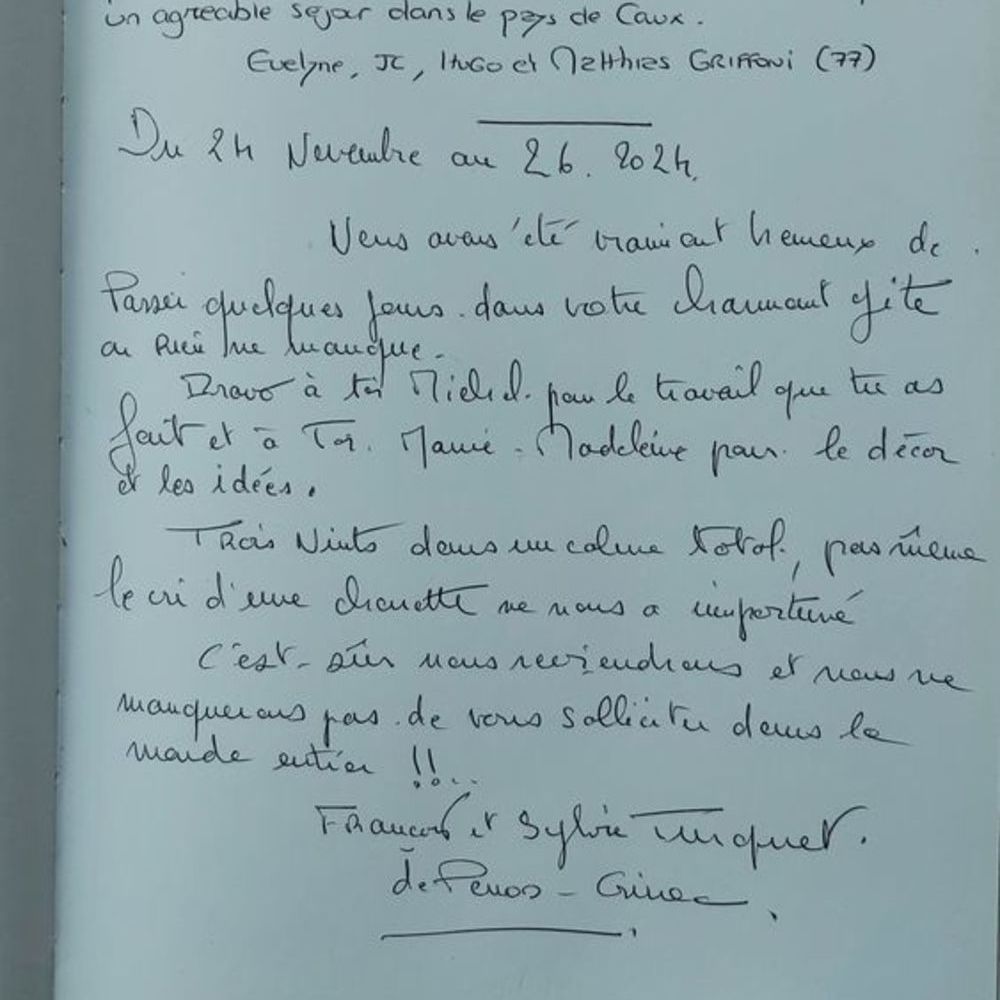 un agréable séjour dans le pays de Caux.
Evelyne, JC, HUGO et Matthias GRIFFONI (77)
Du 24 Novembre au 26. 2024.
Nous avons été vraiment heureux de
Passer quelques jours. dans votre charmant gîte
où rien ne manque.
Bravo à toi Michel. pour le travail que tu as
fait et à Toi. Marie-Madeleine pour. le décor
et les idées.
Trois Nuits dans un calme total., pas même
le cri d'une chouette ne nous a importuné
C'est-sûr nous reviendrons et nous ne
manquerons pas. de vous solliciter dans le
monde entier !!...
François et Sylvie Turquet.
de Penos-